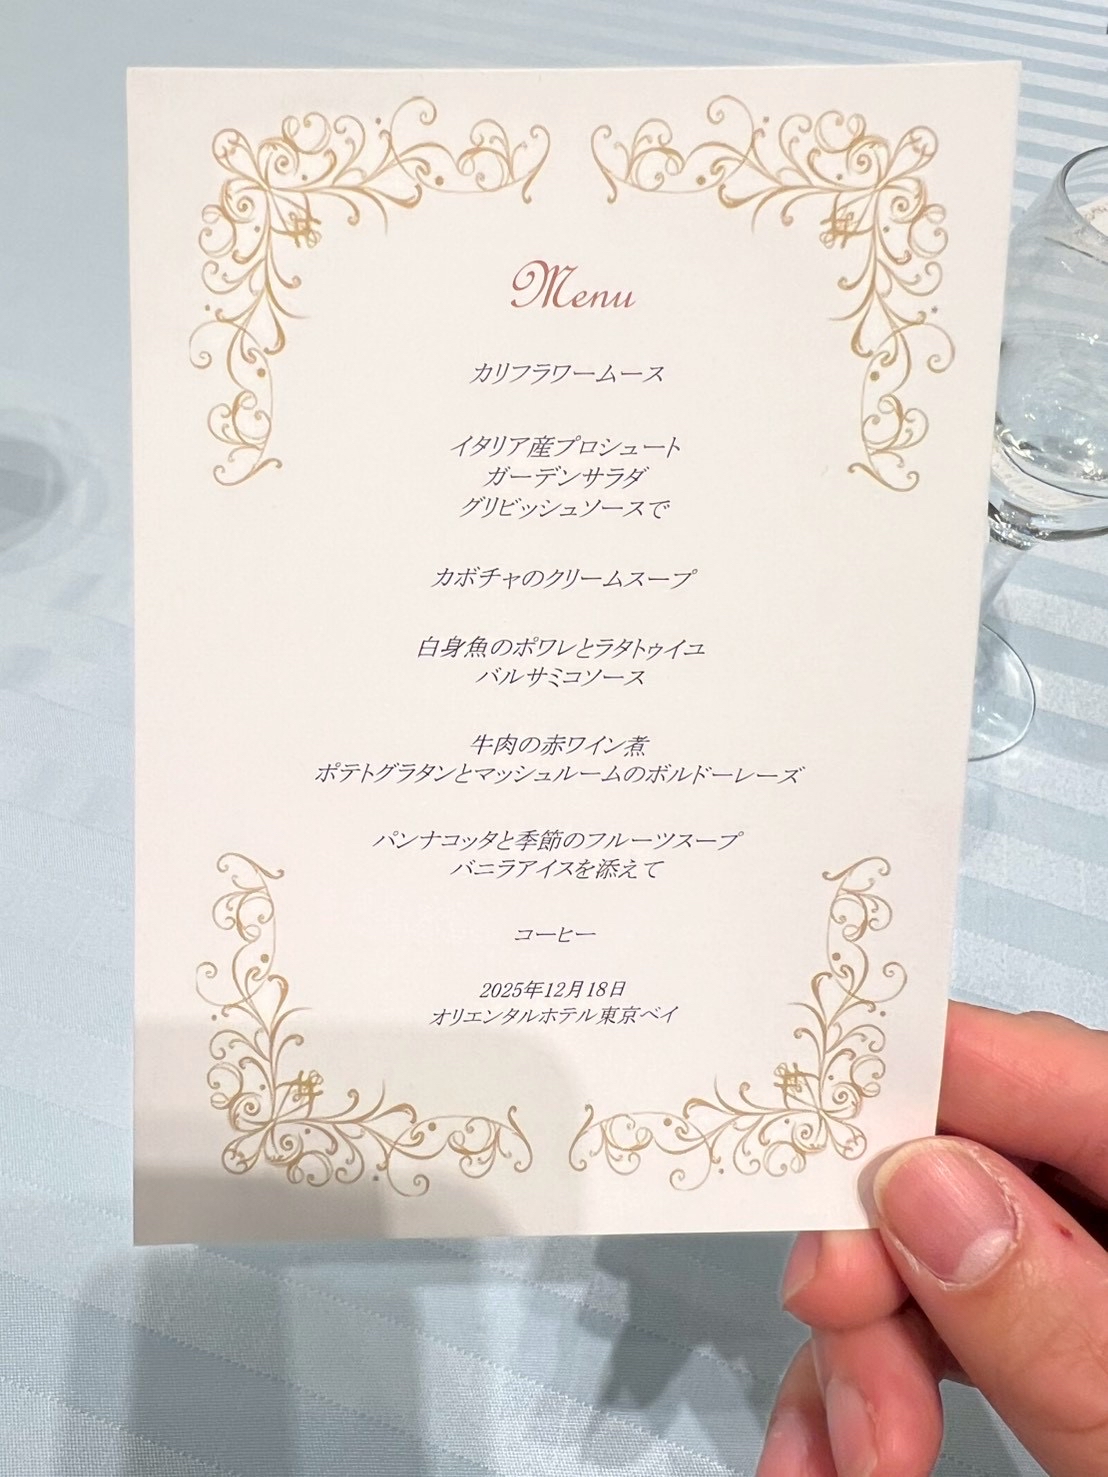 Menu
カリフラワームース
イタリア産プロシュート
ガーデンサラダ
グリビッシュソースで
カボチャのクリームスープ
白身魚のポワレとラタトゥイユ
バルサミコソース
牛肉の赤ワイン煮
ポテトグラタンとマッシュルームのボルドーレーズ
パンナコッタと季節のフルーツスープ
バニラアイスを添えて
コーヒー
2025年12月18日
オリエンタルホテル東京ベイ